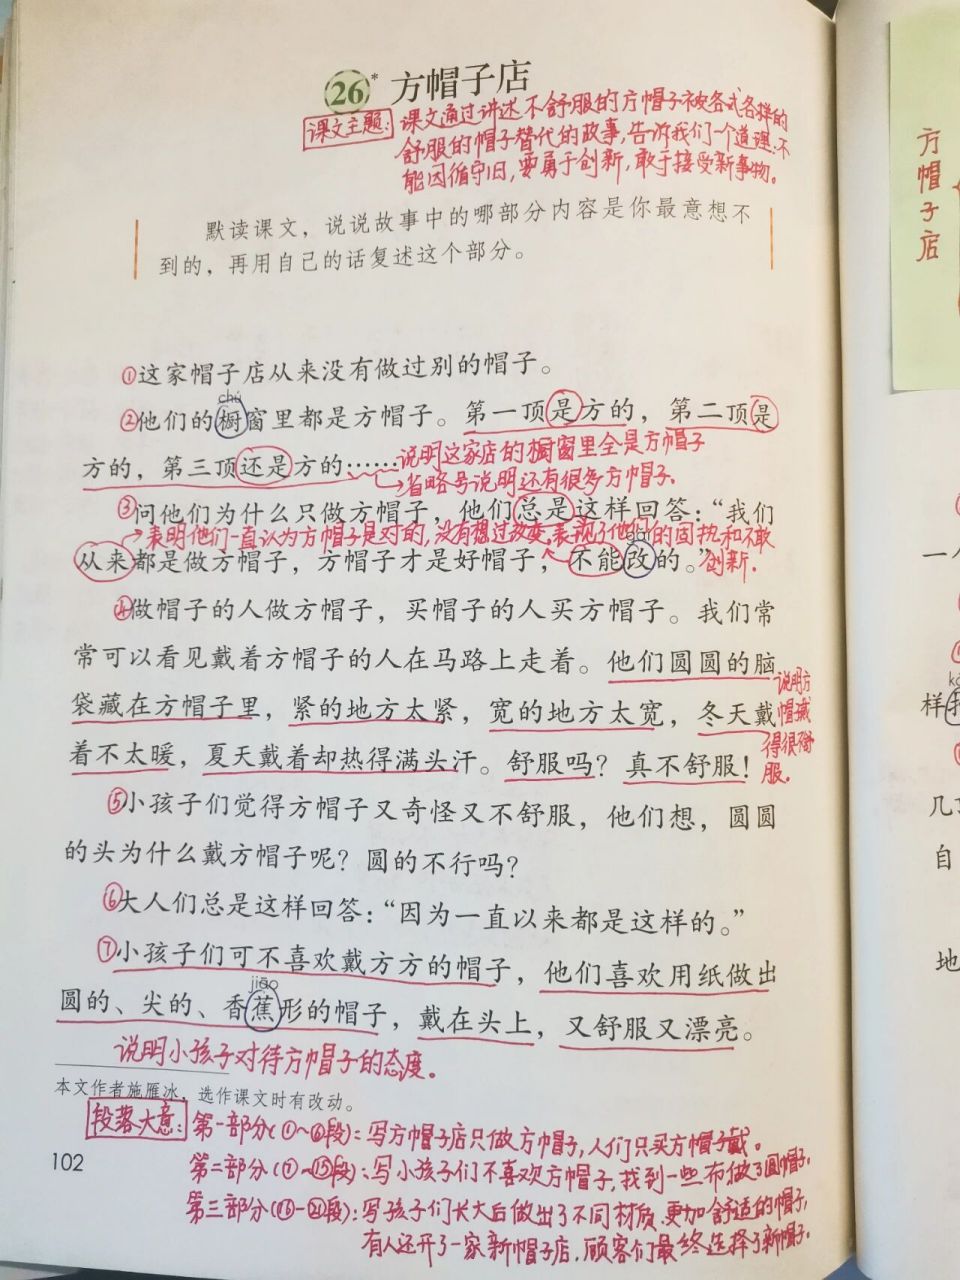 26* 方帽子店
课文主题: 课文通过讲述不舒服的方帽子被各式各样的
舒服的帽子替代的故事,告诉我们一个道理:不
能因循守旧,要勇于创新,敢于接受新事物。
默读课文，说说故事中的哪部分内容是你最意想不
到的，再用自己的话复述这个部分。
①这家帽子店从来没有做过别的帽子。
chú
②他们的橱窗里都是方帽子。第一顶是方的，第二顶是
方的，第三顶还是方的……
说明这家店的橱窗里全是方帽子
省略号说明还有很多方帽子.
③问他们为什么只做方帽子，他们总是这样回答：“我们
表明他们一直认为方帽子是对的,没有想过改变.表现了他们的固执和不敢
创新.
从来都是做方帽子，方帽子才是好帽子，不能改的。”
④做帽子的人做方帽子，买帽子的人买方帽子。我们常
常可以看见戴着方帽子的人在马路上走着。他们圆圆的脑
袋藏在方帽子里，紧的地方太紧，宽的地方太宽，冬天戴
着不太暖，夏天戴着却热得满头汗。舒服吗？真不舒服！
说明方
帽戴
得很
服.
⑤小孩子们觉得方帽子又奇怪又不舒服，他们想，圆圆
的头为什么戴方帽子呢？圆的不行吗？
⑥大人们总是这样回答：“因为一直以来都是这样的。”
⑦小孩子们可不喜欢戴方方的帽子，他们喜欢用纸做出
jiāo
圆的、尖的、香蕉形的帽子，戴在头上，又舒服又漂亮。
说明小孩子对待方帽子的态度。
本文作者施雁冰，选作课文时有改动。
段落大意: 第一部分(①~⑥段): 写方帽子店只做方帽子,人们只买方帽子戴。
第二部分(⑦~⑮段): 写小孩子们不喜欢方帽子,找到一些布做了圆帽子.
第三部分(⑯-㉑段): 写孩子们长大后做出了不同材质.更加舒适的帽子,
有人还开了一家新帽子店,顾客们最终选择了新帽子.
102
方
帽
子
店
一个
样
几
自
地